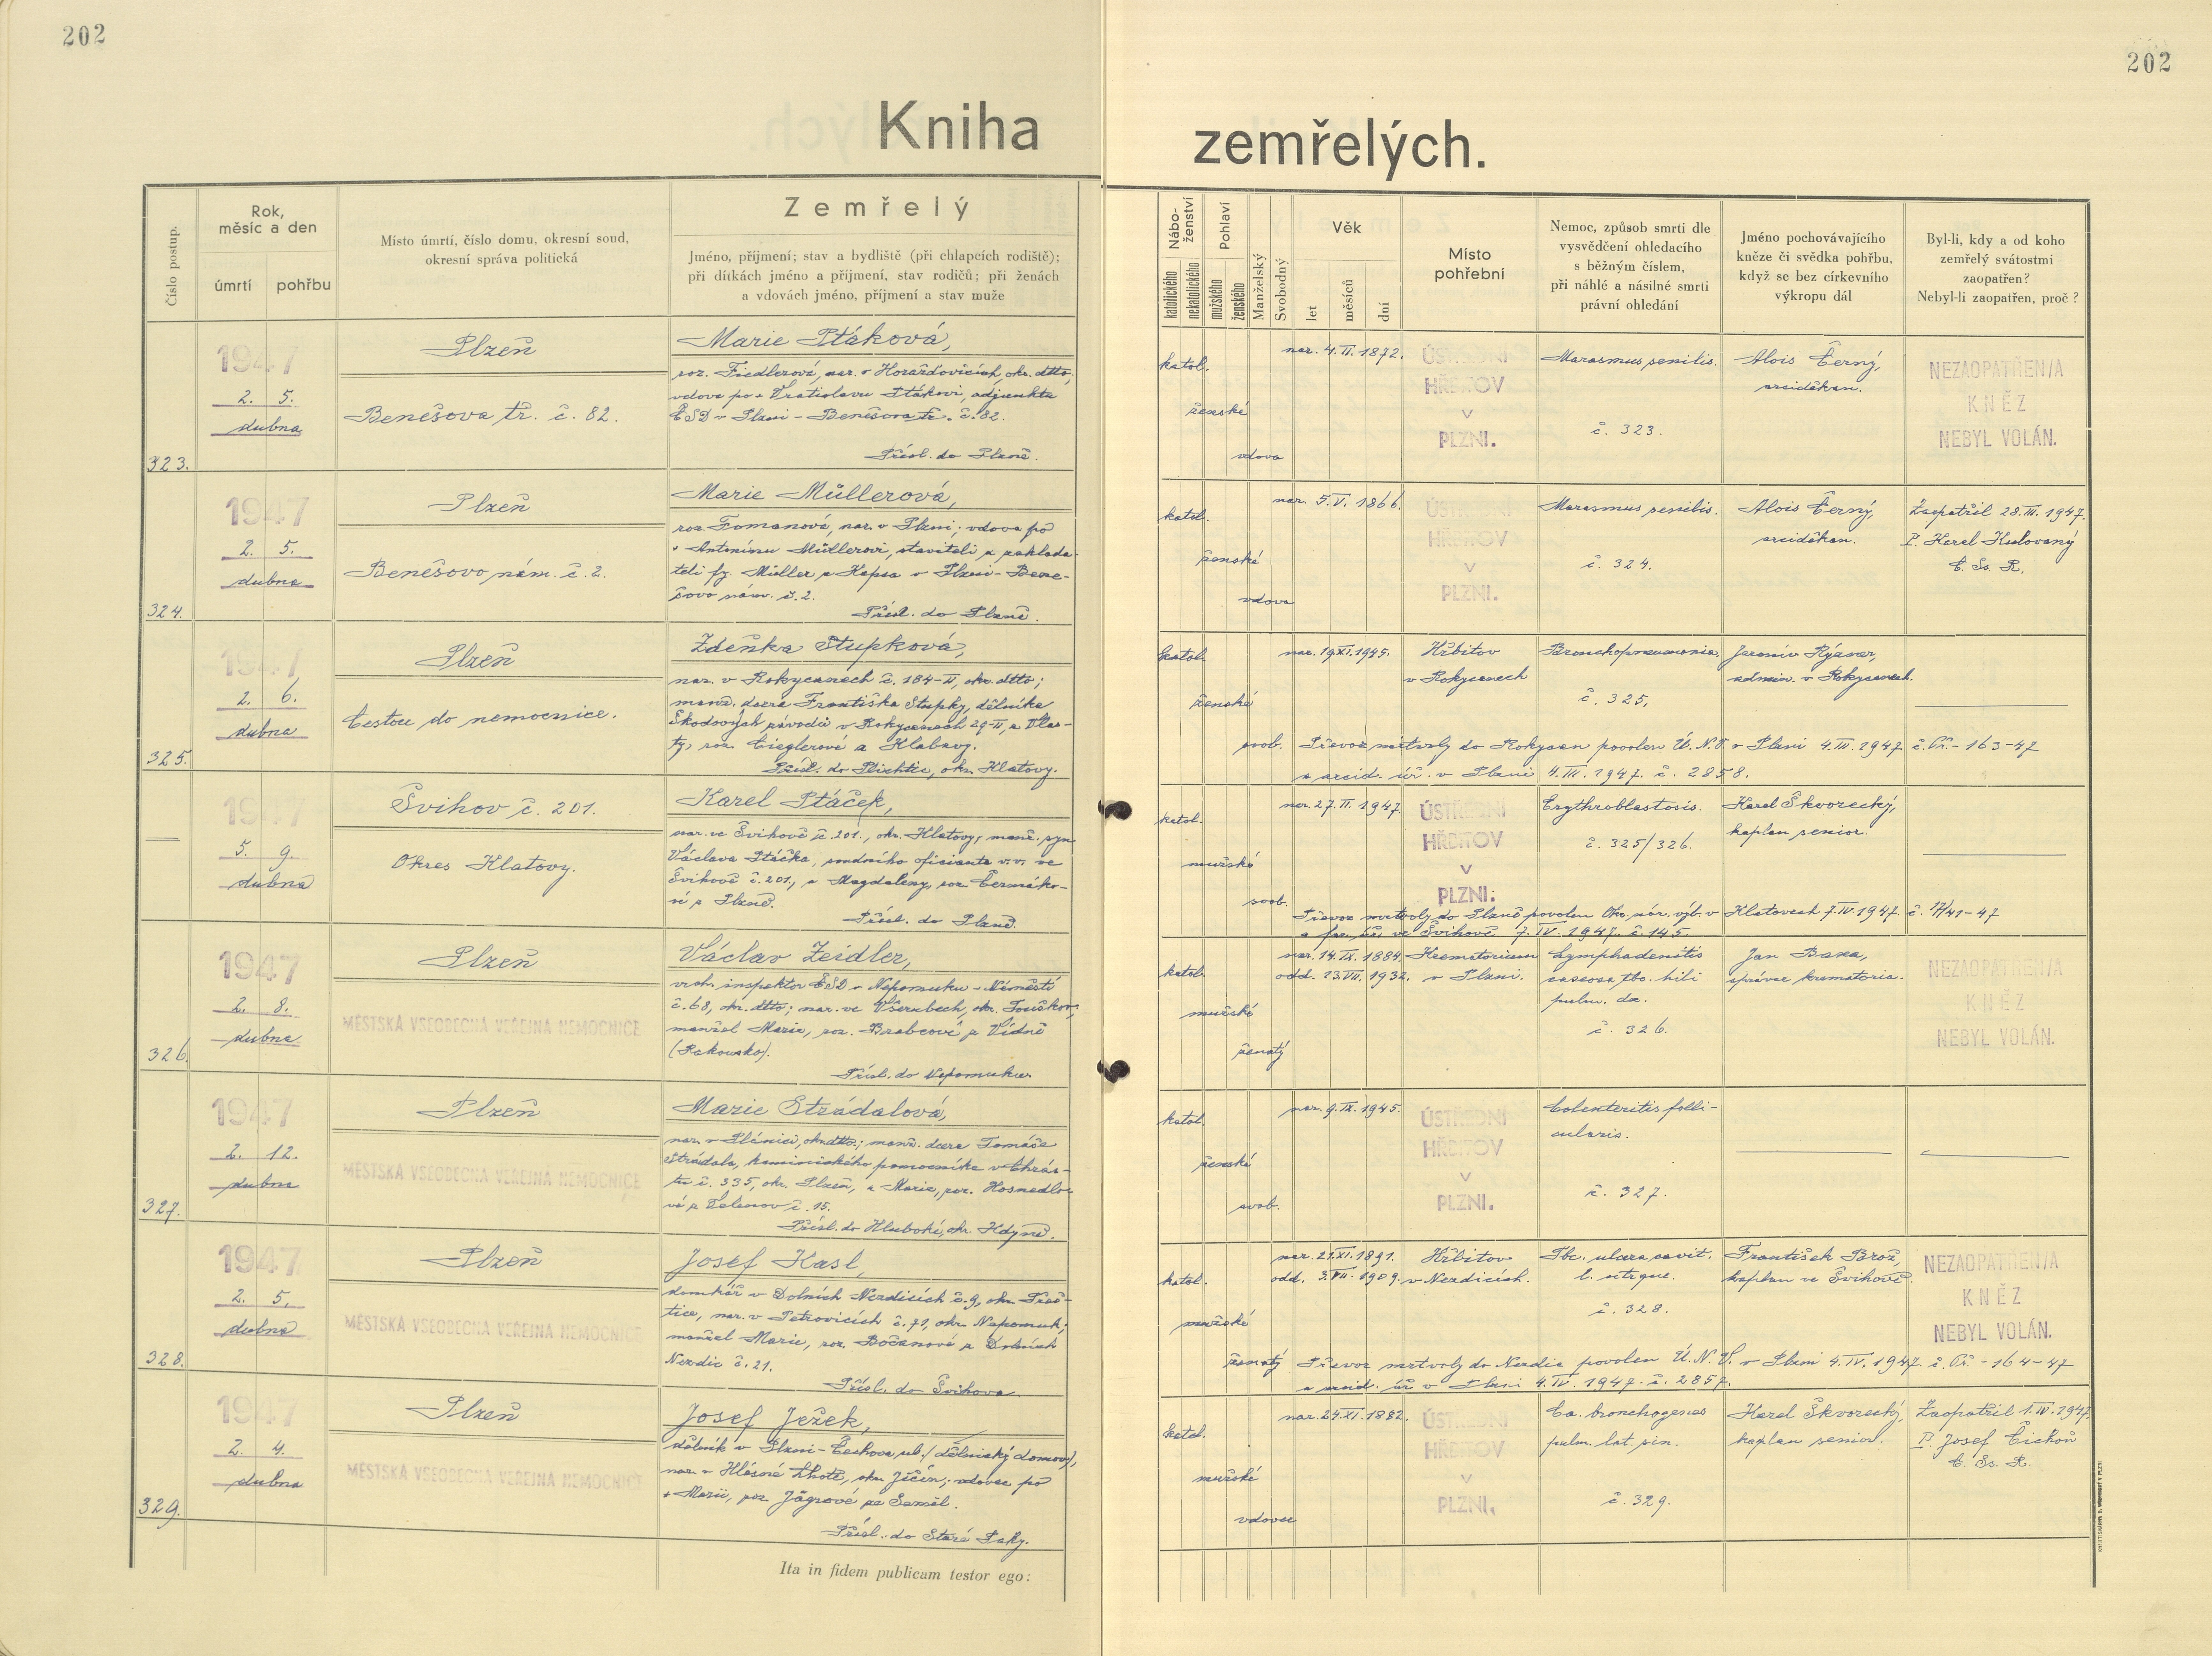 202
202
Kniha zemřelých.
Číslo postup.
Rok,
měsíc a den
úmrtí
pohřbu
Místo úmrtí, číslo domu, okresní soud,
okresní správa politická
Zemřelý
Jméno, příjmení; stav a bydliště (při chlapcích rodiště);
při dítkách jméno a příjmení, stav rodičů; při ženách
a vdovách jméno, příjmení a stav muže
Nábo-
ženství
katolického
nekatolického
Pohlaví
mužského
ženského
Manželský
Svobodný
Věk
let
měsíců
dní
Místo
pohřební
Nemoc, způsob smrti dle
vysvědčení ohledacího
s běžným číslem,
při náhlé a násilné smrti
právní ohledání
Jméno pochovávajícího
kněze či svědka pohřbu,
když se bez církevního
výkropu dál
Byl-li, kdy a od koho
zemřelý svátostmi
zaopatřen?
Nebyl-li zaopatřen, proč?
323.
1947
2. 5.
dubna
Plzeň
Benešova tř. č. 82.
Marie Ptáková,
roz. Fiedlerová, nar. v Horažďovicích, okr. dtto,
vdova po + Vratislavu Ptákovi, adjunktu
ČSD v Plzni - Benešova tř. č. 82.
Přísl. do Plzně.
katol.
ženské
vdova
nar. 4. II. 1872.
ÚSTŘEDNÍ
HŘBITOV
V
PLZNI.
Marasmus senilis.
č. 323.
Alois Černý,
arciděkan.
NEZAOPATŘEN/A
KNĚZ
NEBYL VOLÁN.
324.
1947
2. 5.
dubna
Plzeň
Benešovo nám. č. 2.
Marie Müllerová,
roz. Tomanová, nar. v Plzni; vdova po
+ Antonínu Müllerovi, staviteli a zaklada-
teli fy. Müller a Kapsa v Plzni - Bene-
šovo nám. č. 2.
Přísl. do Plzně.
katol.
ženské
vdova
nar. 5. V. 1866.
ÚSTŘEDNÍ
HŘBITOV
V
PLZNI.
Marasmus senilis.
č. 324.
Alois Černý,
arciděkan.
Zaopatřil 28. III. 1947.
P. Karel
C. Ss. R.
325.
1947
2. 6.
dubna
Plzeň
Cestou do nemocnice.
Zdeňka Stupková,
nar. v Rokycanech č. 184-II, okr. dtto;
manž. dcera Františka Stupky, dělníka
Škodových závodů v Rokycanech 29-II, a Vlas-
ty, roz. Cieglerové a Klabavy.
Přísl. do Plichtic, okr. Klatovy.
katol.
ženské
svob.
nar. 19. XI. 1945.
Hřbitov
v Rokycanech
Bronchopneumonia.
č. 325.
admin. v Rokycanech.
Převoz mrtvoly do Rokycan povolen Ú.N.V. v Plzni 4. IV. 1947 č. - 163-47
a arcid. úř. v Plzni 4. IV. 1947. č. 2858.
1947
5. 9.
dubna
Švihov č. 201.
Okres Klatovy.
Karel Ptáček,
nar. ve Švihově č. 201, okr. Klatovy, manž. syn
Václava Ptáčka, soudního oficianta v.v. ve
Švihově č. 201, a Magdaleny, roz. Čermáko-
vé z Plzně.
Přísl. do Plzně.
katol.
mužské
svob.
nar. 27. II. 1947.
ÚSTŘEDNÍ
HŘBITOV
V
PLZNI.
Erythroblastosis.
č. 325/326.
Karel Škvorecký,
kaplan senior.
Převoz mrtvoly do Plzně povolen Okr. nár. výb. v Klatovech 7. IV. 1947. č. 17/41-47
a far. úř. ve Švihově 7. IV. 1947. č. 145.
326.
1947
2. 8.
dubna
Plzeň
MĚSTSKÁ VŠEOBECNÁ VEŘEJNÁ NEMOCNICE
Václav Zeidler,
vrch. inspektor ČSD v Nepomuku - Náměstí
č. 68, okr. dtto; nar. ve Všerubech, okr. Touškov;
manžel Marie, roz. Brabcové z Vídně
(Rakousko).
Přísl. do Nepomuku.
katol.
mužské
ženatý
nar. 14. IX. 1884.
odd. 13. VII. 1932.
Krematorium
v Plzni.
Lymphadenitis
caseosa tbc. hili
pulm. dx.
č. 326.
Jan Baxa,
správce krematoria.
NEZAOPATŘEN/A
KNĚZ
NEBYL VOLÁN.
327.
1947
2. 12.
dubna
Plzeň
MĚSTSKÁ VŠEOBECNÁ VEŘEJNÁ NEMOCNICE
Marie Strádalová,
nar. v Plánici, okr. dtto; manž. dcera Tomáše
Strádala, kominického pomocníka v Chrás-
tu č. 335, okr. Plzeň, a Marie, roz. Hosnedlo-
vé z č. 15.
Přísl. do Hluboké, okr. Kdyně.
katol.
ženské
svob.
nar. 9. IX. 1945.
ÚSTŘEDNÍ
HŘBITOV
V
PLZNI.
Colenteritis folli-
cularis.
č. 327.
328.
1947
2. 5.
dubna
Plzeň
MĚSTSKÁ VŠEOBECNÁ VEŘEJNÁ NEMOCNICE
Josef Kasl,
domkář v Dolních Nezdicích č. 9, okr. Přeš-
tice, nar. v Petrovicích č. 71, okr. Nepomuk;
manžel Marie, roz. Bočanové z Dolních
Nezdic č. 21.
Přísl. do Švihova.
katol.
mužské
ženatý
nar. 21. XI. 1891.
odd. 3. VII. 1909.
Hřbitov
v Nezdicích.
Tbc. ulcera cavit.
l. utrque.
č. 328.
František Brož,
kaplan ve Švihově.
NEZAOPATŘEN/A
KNĚZ
NEBYL VOLÁN.
Převoz mrtvoly do Nezdic povolen Ú.N.V. v Plzni 4. IV. 1947. č. - 164-47
a arcid. úř. v Plzni 4. IV. 1947. č. 2857.
329.
1947
2. 4.
dubna
Plzeň
MĚSTSKÁ VŠEOBECNÁ VEŘEJNÁ NEMOCNICE
Josef Ježek,
dělník v Plzni - Čechova ul. (dělnický domov),
nar. v Hlásné Lhotě, okr. Jičín; vdovec po
+ Marii, roz. Jágrové ze Semil.
Přísl. do Staré Paky.
katol.
mužské
vdovec
nar. 24. XI. 1882.
ÚSTŘEDNÍ
HŘBITOV
V
PLZNI.
Ca. bronchogenes
pulm. lat. sin.
č. 329.
Karel Škvorecký,
kaplan senior.
Zaopatřil 1. IV. 1947.
P. Josef Cichoň
C. Ss. R.
Ita in fidem publicam testor ego: